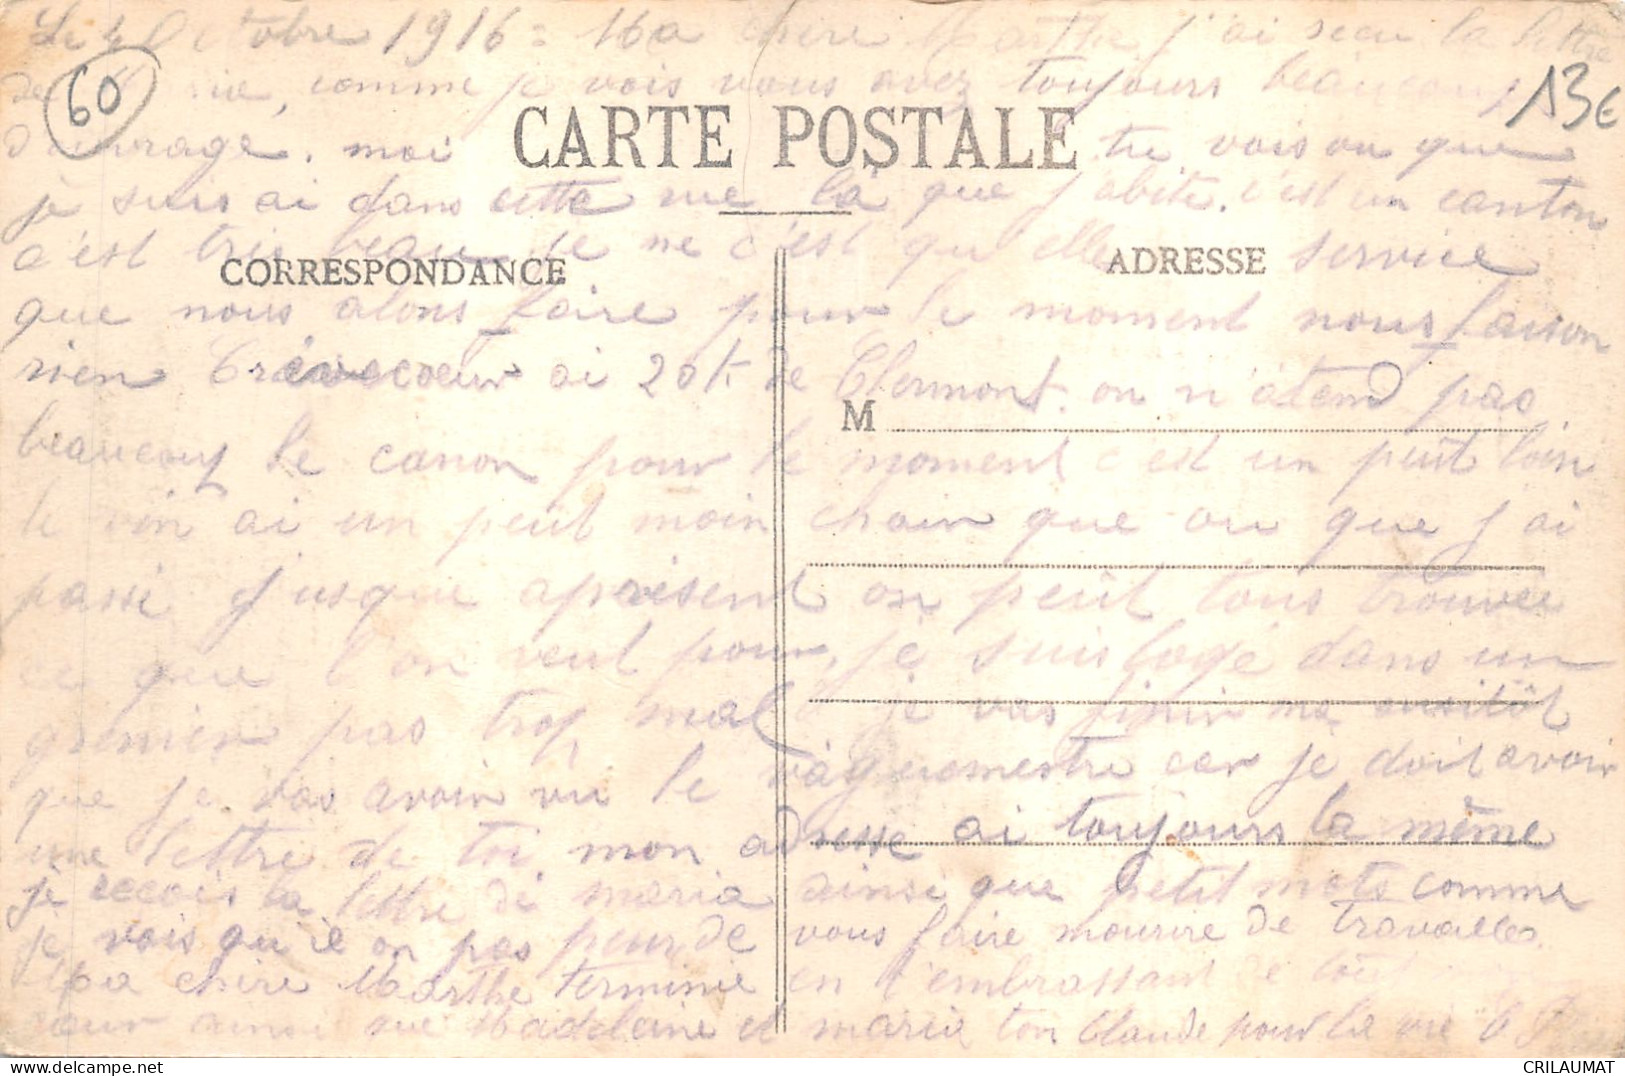 Le 4 Octobre 1916 = Ma chère Marthe j'ai recu la lettre
de comme je vois vous avez toujours beaucoup
60
13€
d'ouvrage, moi tu vois ou que
CARTE POSTALE
je suis ai dans cette rue la que j'abite. c'est un canton
c'est tris beau je ne c'est qu elle service
CORRESPONDANCE
ADRESSE
que nous alons faire pour le moment nous faison
rien Crévecoeur ai 20 K de Clermont. on n'atend pas
M
beaucoup le canon pour le moment c'est un peut loin
le vin ai un peut moin chair que ou que j'ai
passé jusque aprésent on peut tous trouver
ce que l'on veut pour, je suis logé dans un
grenier pas trop mal je vas finir ma ausitôt
que je vas avoir vu le vaguemestre car je doit avoir
une lettre de toi mon adresse ai toujours la même
je recois la lettre de maria ainsi que petit mots comme
je vois qu'ie on pas peur de vous faire mourire de travailles
Ma chère Marthe termine en t'embrassant de tout
cœur ainsi que Madeleine et maria ton Claude pour la vie
CRILAUMAT